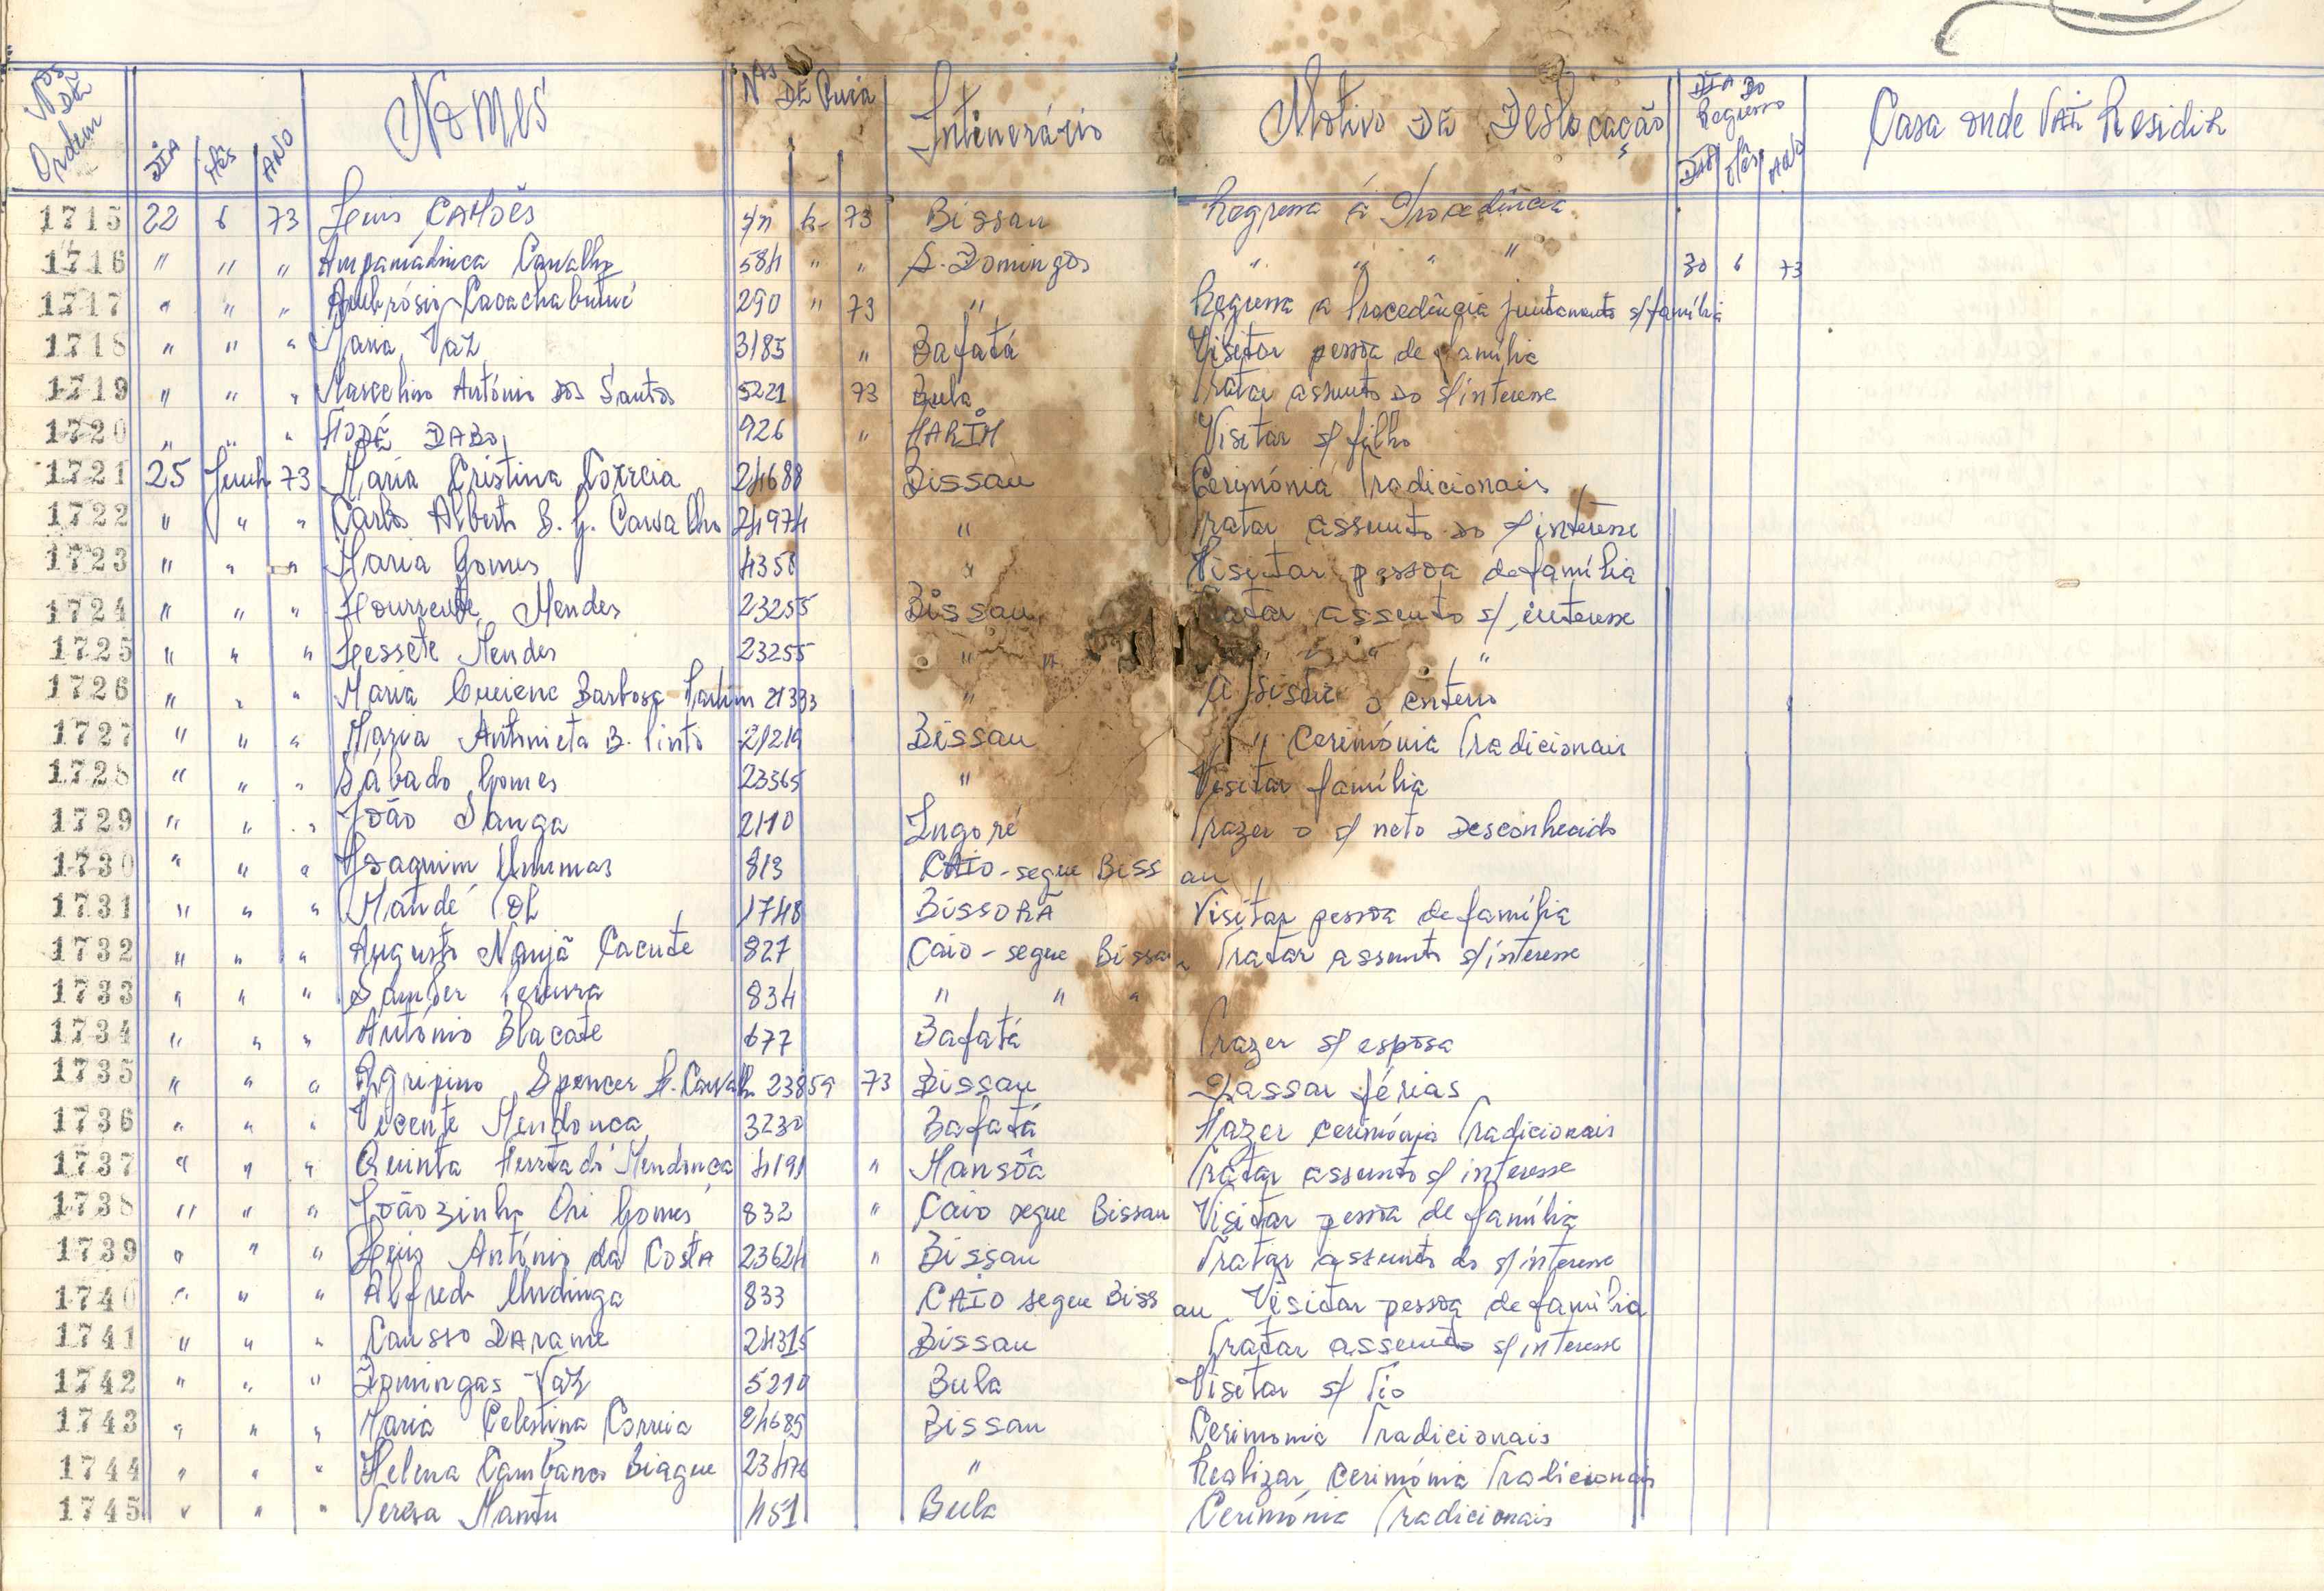 Nos DE Ordem DIA Mês ANO NOMES Nos DE Guia Intinerário Motivo DA Deslocação DIA DO Regresso DIA Mês ANO Casa onde VAI Residir
1715 22 6 73 Luis CAMÕES 73 Bissau Regressa á Procedência
1716 " " " Carvalho 584 " " S. Domingos " " " " 30 6 73
1717 " " " Ambrósio 290 " 73 " Regressa a Procedência juntamente s/família
1718 " " " Maria Vaz 3185 " Bafatá Visitar pessoa de família
1719 " " " Marcelino António dos Santos 5221 73 Bula Tratar assunto do s/interesse
1720 " " " DABO 926 " Visitar s/ filho
1721 25 Junh 73 Maria Cristina Correia 24688 Bissau Cerimónia Tradicionais
1722 " " " Carlos Alberto B. G. Carvalho 24974 " Tratar assunto do s/interesse
1723 " " " Maria Gomes 4358 " Visitar pessoa de família
1724 " " " Mendes 23255 Bissau Tratar assunto s/ interesse
1725 " " " Mendes 23255 " " " " " "
1726 " " " Maria Barbosa 21333 " Assistir o enterro
1727 " " " Maria Antonieta B. Pinto 21219 Bissau " Cerimónia Tradicionais
1728 " " " Sábado Gomes 23565 " Visitar família
1729 " " " João Sanga 2110 Ingoré Trazer o s/ neto Desconhecido
1730 " " " Joaquim 813 CAIO - segue Bissau
1731 " " " Mandé 1748 BISSORÃ Visitar pessoa de família
1732 " " " Augusto Nanjã Cacute 827 Caio - segue Bissau Tratar assunto s/interesse
1733 " " " Pereira 834 " " "
1734 " " " António Blacate 677 Bafatá Trazer s/ esposa
1735 " " " Agripino Spencer 23859 73 Bissau Passar férias
1736 " " " Vicente Mendonca 3230 Bafatá Fazer cerimónia Tradicionais
1737 " " " Quinta Mendonça 4191 " Mansôa Tratar assunto s/ interesse
1738 " " " Joãozinho Gomes 832 " Caio segue Bissau Visitar pessoa de família
1739 " " " Luis António da Costa 23624 " Bissau Tratar assunto do s/interesse
1740 " " " Alfredo 833 CAIO segue Bissau Visitar pessoa de família
1741 " " " Causso DARAME 24315 Bissau Tratar assunto s/interesse
1742 " " " Domingas Vaz 5210 Bula Visitar s/ Tio
1743 " " " Maria Celestina Correia 24689 Bissau Cerimonia Tradicionais
1744 " " " Helena Biague " Realizar cerimónia Tradicionais
1745 " " " Teresa 451 Bula Cerimónia Tradicionais